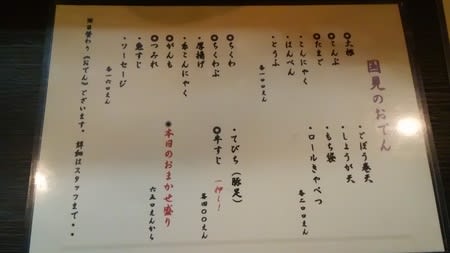 国見のおでん
◉大根
◉こんぶ
◉たまご
・こんにゃく
・はんぺん
・とうふ
各一〇〇えん
・ごぼう巻天
・しょうが天
・もち袋
・ロールきゃべつ
各二〇〇えん
◉ちくわ
◉ちくわぶ
・厚揚げ
・糸こんにゃく
◉がんも
◉つみれ
・魚すじ
・ソーセージ
各一六〇えん
・てびち（豚足）
◉牛すじ 一押し！
各四〇〇えん
◉本日のおまかせ盛り
六五〇えんから
※日替わり《おでん》ございます。詳細はスタッフまで・・